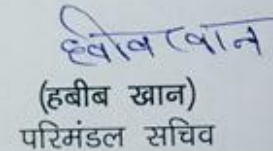 हबीब खान
(हबीब खान)
परिमंडल सचिव